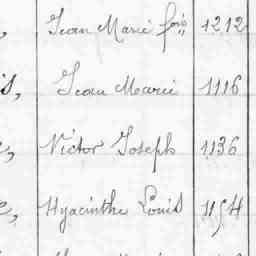 Jean Marie fois 1212
is, Jean Marie 1116
Victor Joseph 1136
Hyacinthe Louis 1154